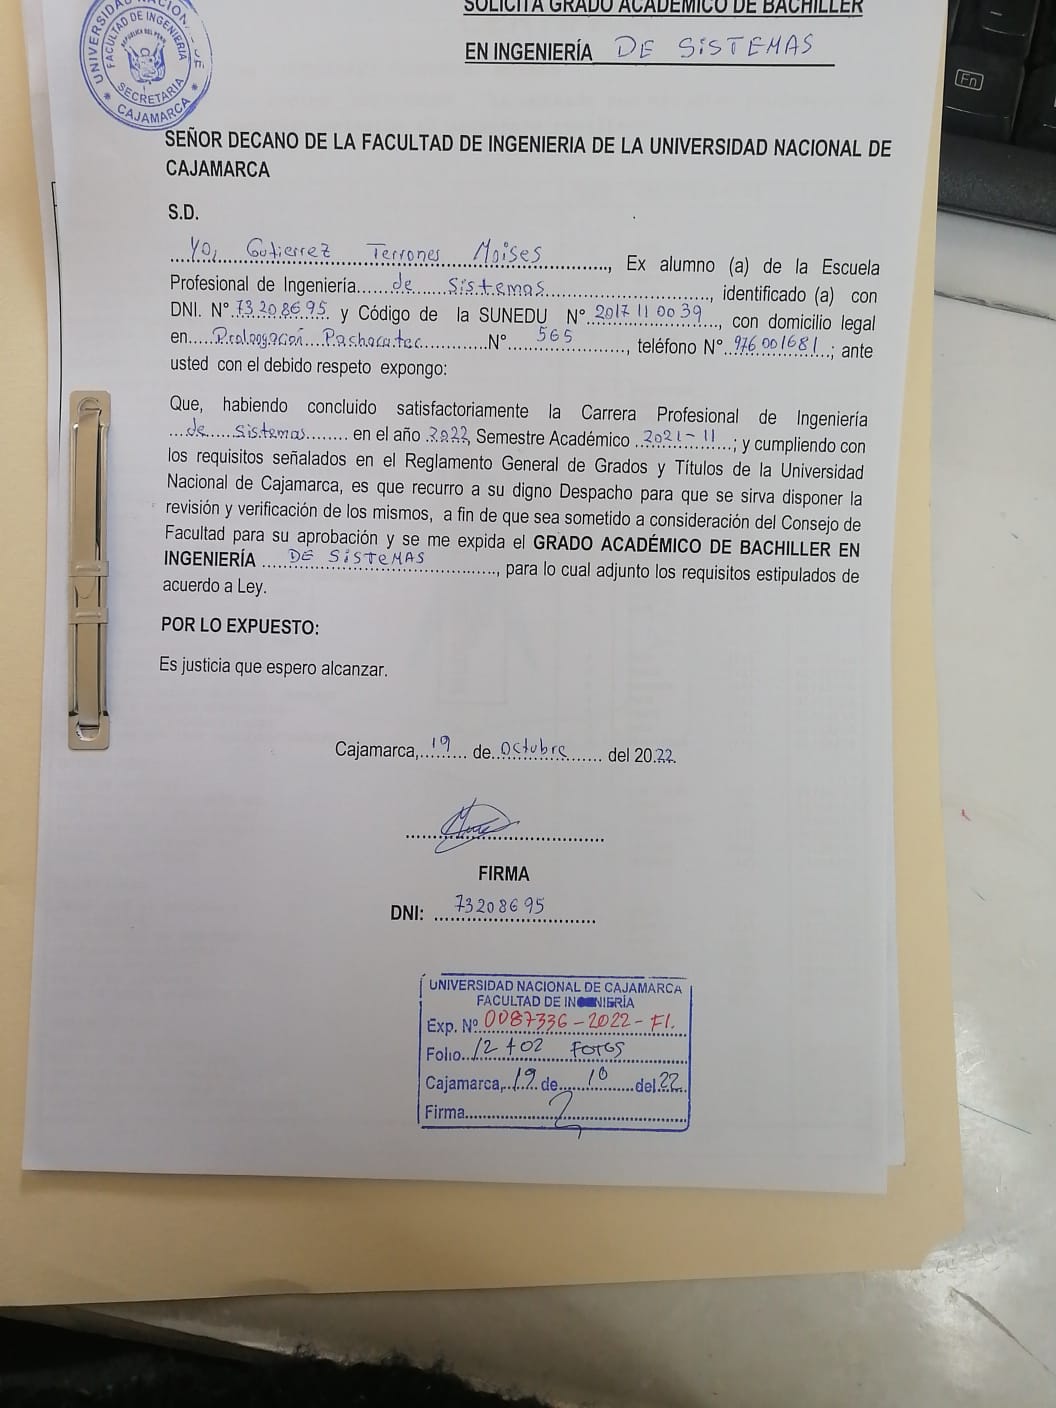 SOLICITA GRADO ACADÉMICO DE BACHILLER
EN INGENIERÍA DE SISTEMAS
UNIVERSIDAD NACIONAL DE CAJAMARCA
FACULTAD DE INGENIERÍA
REPUBLICA DEL PERU
SECRETARIA
SEÑOR DECANO DE LA FACULTAD DE INGENIERIA DE LA UNIVERSIDAD NACIONAL DE
CAJAMARCA
S.D.
Yo, Gutierrez Terrones Moises, Ex alumno (a) de la Escuela
Profesional de Ingeniería de Sistemas, identificado (a) con
DNI. N° 73208695 y Código de la SUNEDU N° 2017110039, con domicilio legal
en Prolongación Pachacutec N° 565, teléfono N° 976001681; ante
usted con el debido respeto expongo:
Que, habiendo concluido satisfactoriamente la Carrera Profesional de Ingeniería
de Sistemas en el año 2022, Semestre Académico 2021-II; y cumpliendo con
los requisitos señalados en el Reglamento General de Grados y Títulos de la Universidad
Nacional de Cajamarca, es que recurro a su digno Despacho para que se sirva disponer la
revisión y verificación de los mismos, a fin de que sea sometido a consideración del Consejo de
Facultad para su aprobación y se me expida el GRADO ACADÉMICO DE BACHILLER EN
INGENIERÍA DE SISTEMAS, para lo cual adjunto los requisitos estipulados de
acuerdo a Ley.
POR LO EXPUESTO:
Es justicia que espero alcanzar.
Cajamarca, 19 de Octubre del 2022
FIRMA
DNI: 73208695
UNIVERSIDAD NACIONAL DE CAJAMARCA
FACULTAD DE INGENIERÍA
Exp. N° 0087336-2022-FI.
Folio 12 + 02 FOTOS
Cajamarca, 19 de 10 del 22
Firma
Fn